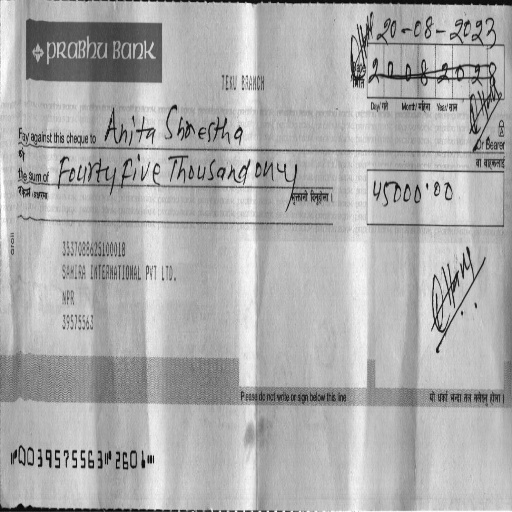 20-08-2023
PRABHU BANK
TEKU BRANCH
20082020
Day/गते Month/महिना Year/साल
Pay against this cheque to Anita Shrestha
Or Bearer
को
वा वाहकलाई
the sum of Fourty five Thousand only
भुक्तानी दिनुहोला ।
45000.00
3537088625100018
SAMIRA INTERNATIONAL PVT LTD.
NPR
39575563
Please do not write or sign below this line
यो धर्का भन्दा तल नलेख्नु होला ।
⑈0039575563⑈2601⑈